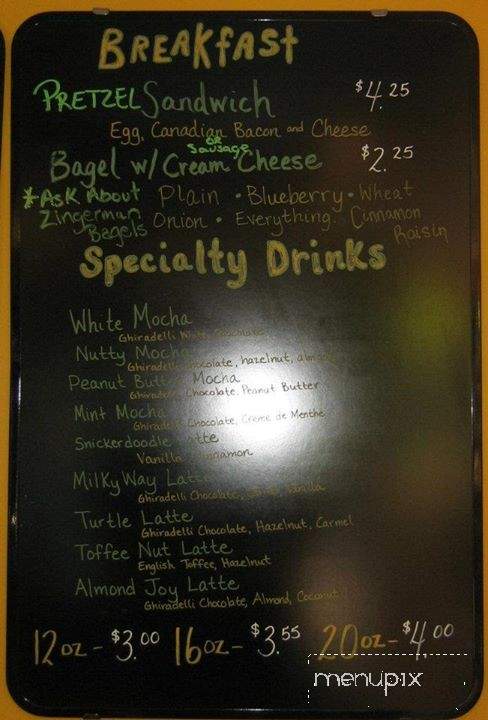 BREAKFAST
PRETZEL Sandwich $4.25
Egg, Canadian Bacon and Cheese
or Sausage
Bagel w/ Cream Cheese $2.25
*Ask About Plain • Blueberry • Wheat
Zingerman Onion • Everything. Cinnamon
Bagels Raisin
Specialty Drinks
White Mocha
Ghiradelli White Chocolate
Nutty Mocha
Ghiradelli Chocolate, hazelnut, almond
Peanut Butt Mocha
Ghiradelli Chocolate, Peanut Butter
Mint Mocha
Ghiradelli Chocolate, Creme de Menthe
Snickerdoodle Latte
Vanilla Cinnamon
MilkyWay Latte
Ghiradelli Chocolate, Vanilla
Turtle Latte
Ghiradelli Chocolate, Hazelnut, Carmel
Toffee Nut Latte
English Toffee, Hazelnut
Almond Joy Latte
Ghiradelli Chocolate, Almond, Coconut
12oz - $3.00 16oz - $3.55 20oz - $4.00
menupix